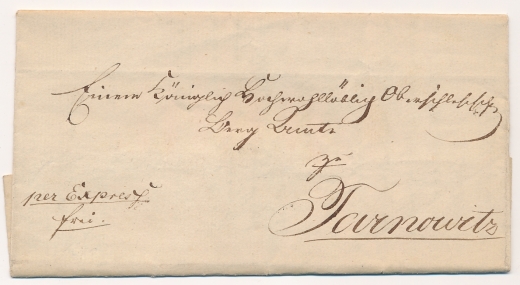 Einem Königlich Hochwohllöblich Oberschlesischen
Berg Amte
zu
Tarnowitz
per Express
frei.